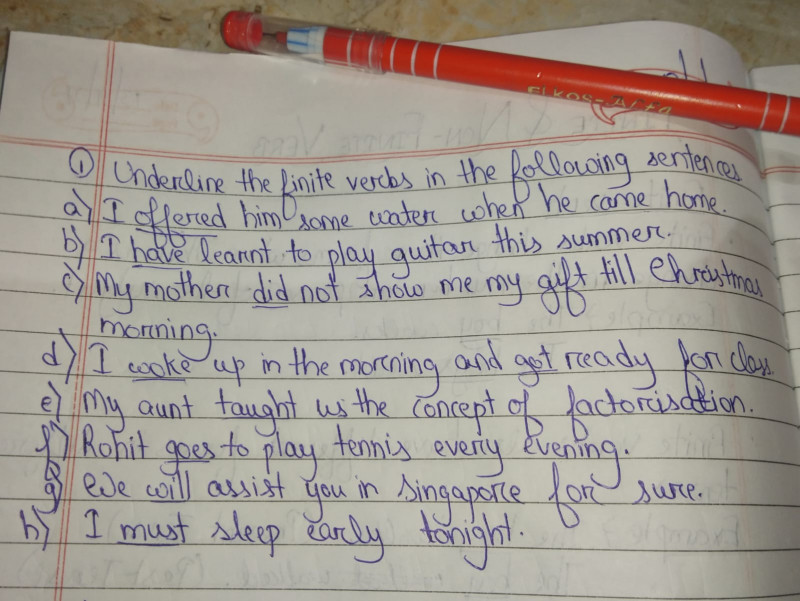 ELKOS-
① Underline the finite verbs in the following sentences
a) I offered him some water when he came home.
b) I have learnt to play guitar this summer.
c) My mother did not show me my gift till Christmas
morning.
d) I woke up in the morning and got ready for class.
e) My aunt taught us the concept of factorisation.
f) Rohit goes to play tennis every evening.
g) We will assist you in Singapore for sure.
h) I must sleep early tonight.